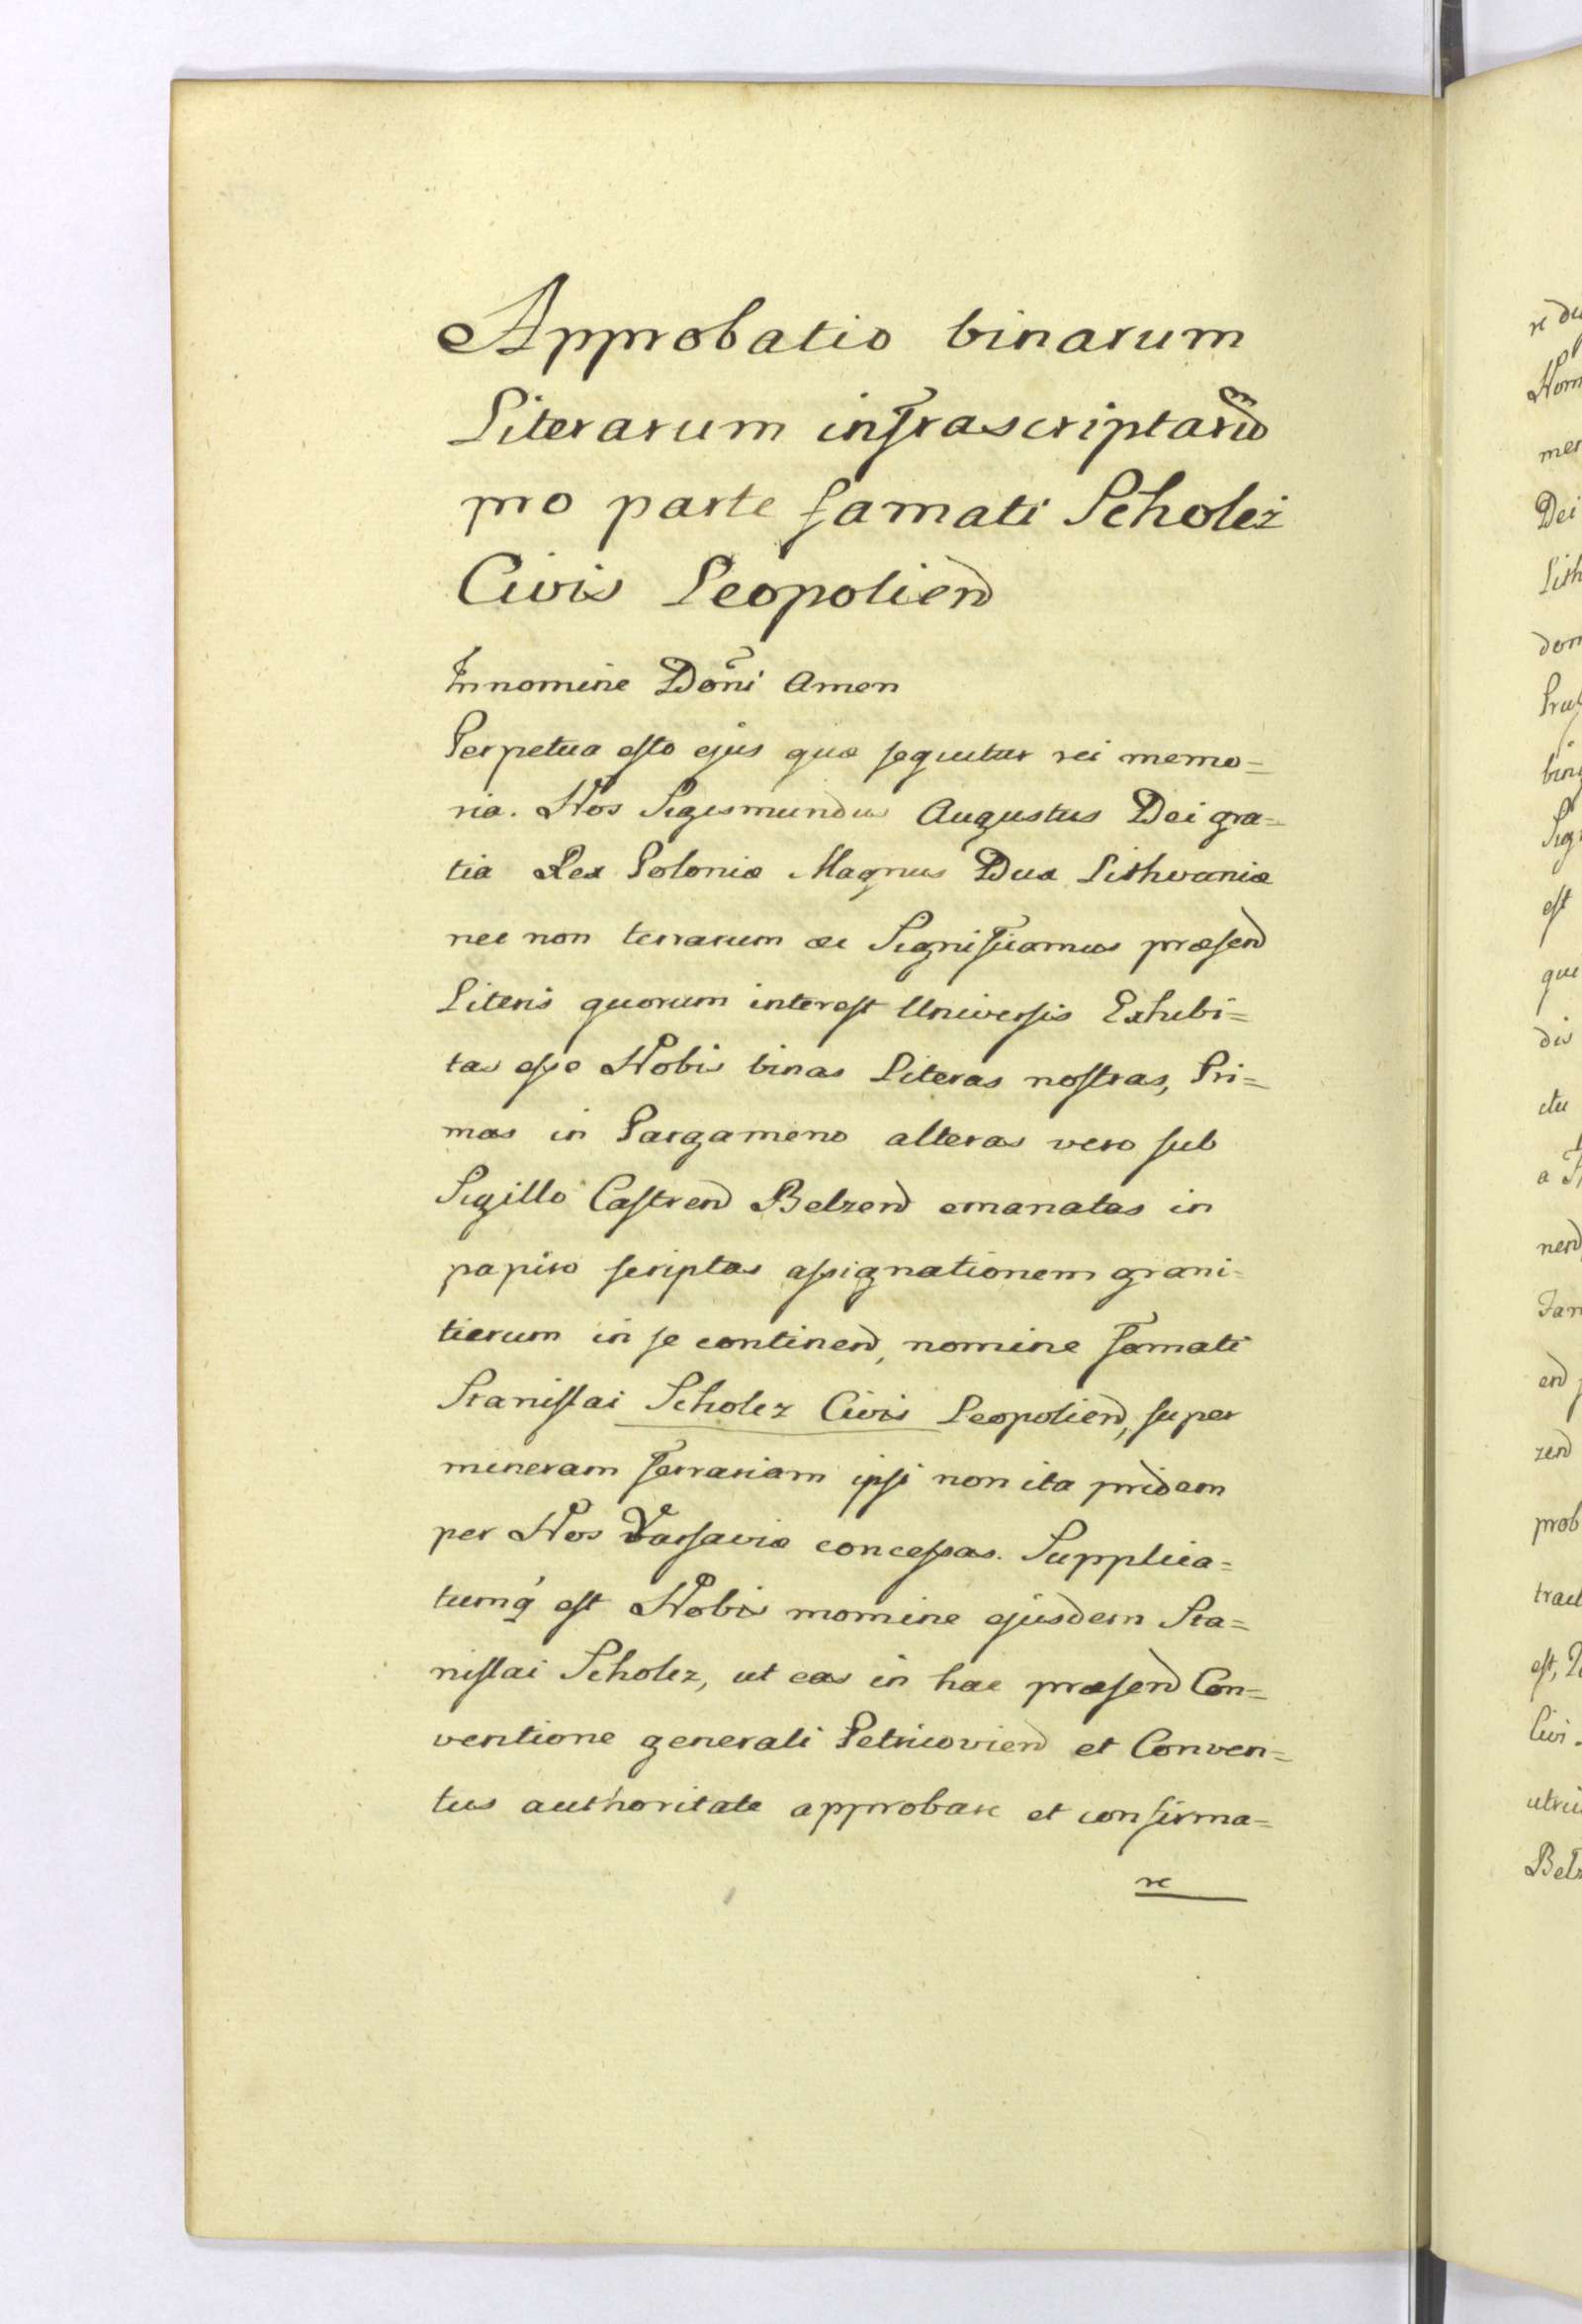 Approbatio binarum
Literarum infrascriptarũ
pro parte famati Scholcz
Civis Leopolien̄
In nomine Dom̄ni Amen
Perpetua esto ejus quæ sequitur rei memo=
ria. Nos Sigismundus Augustus Dei gra=
tia Rex Poloniæ Magnus Dux Lithvaniæ
nec non terrarum ec Significamus præsen̄
Literis quorum interest Universis Exhibi=
tas esse Nobis binas Literas nostras, Pri=
mas in Pargameno alteras vero sub
Sigillo Castren̄ Belzen̄ emanatas in
papiro scriptas assignationem grani=
tierum in se continen̄, nomine famati
Stanislai Scholcz Civis Leopolien̄, super
mineram ferrariam ipsi non ita pridem
per Nos Varsaviæ concessas. Supplica=
tumq́ est Nobis momine ejusdem Sta=
nislai Scholcz, ut eas in hac præsen̄ Con=
ventione generali Petricovien̄ et Conven=
tus authoritate approbare et confirma=
re